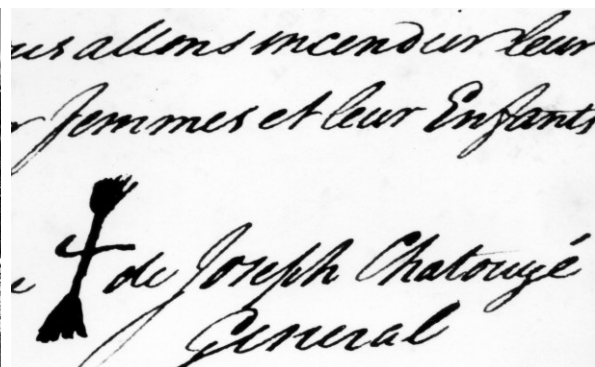 us allons incendier leur
r femmes et leur Enfants
e de Joseph Chatouyé
General